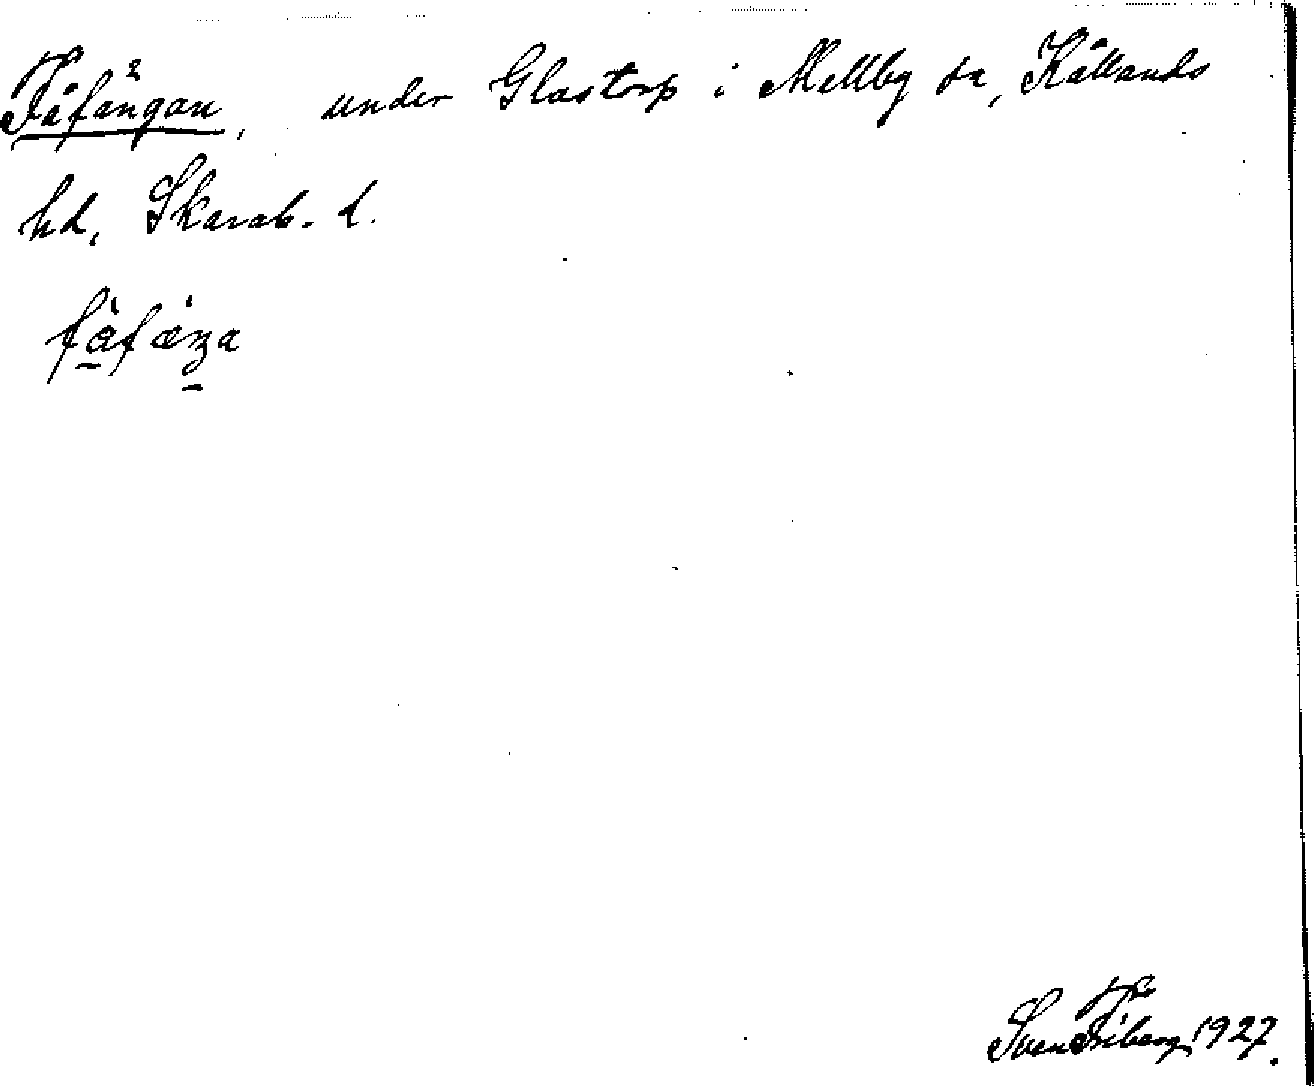 Fåfängan, under Glastorp i Mellby sn, Kållands
hd, Skarab. l.
Sven Friberg 1927.